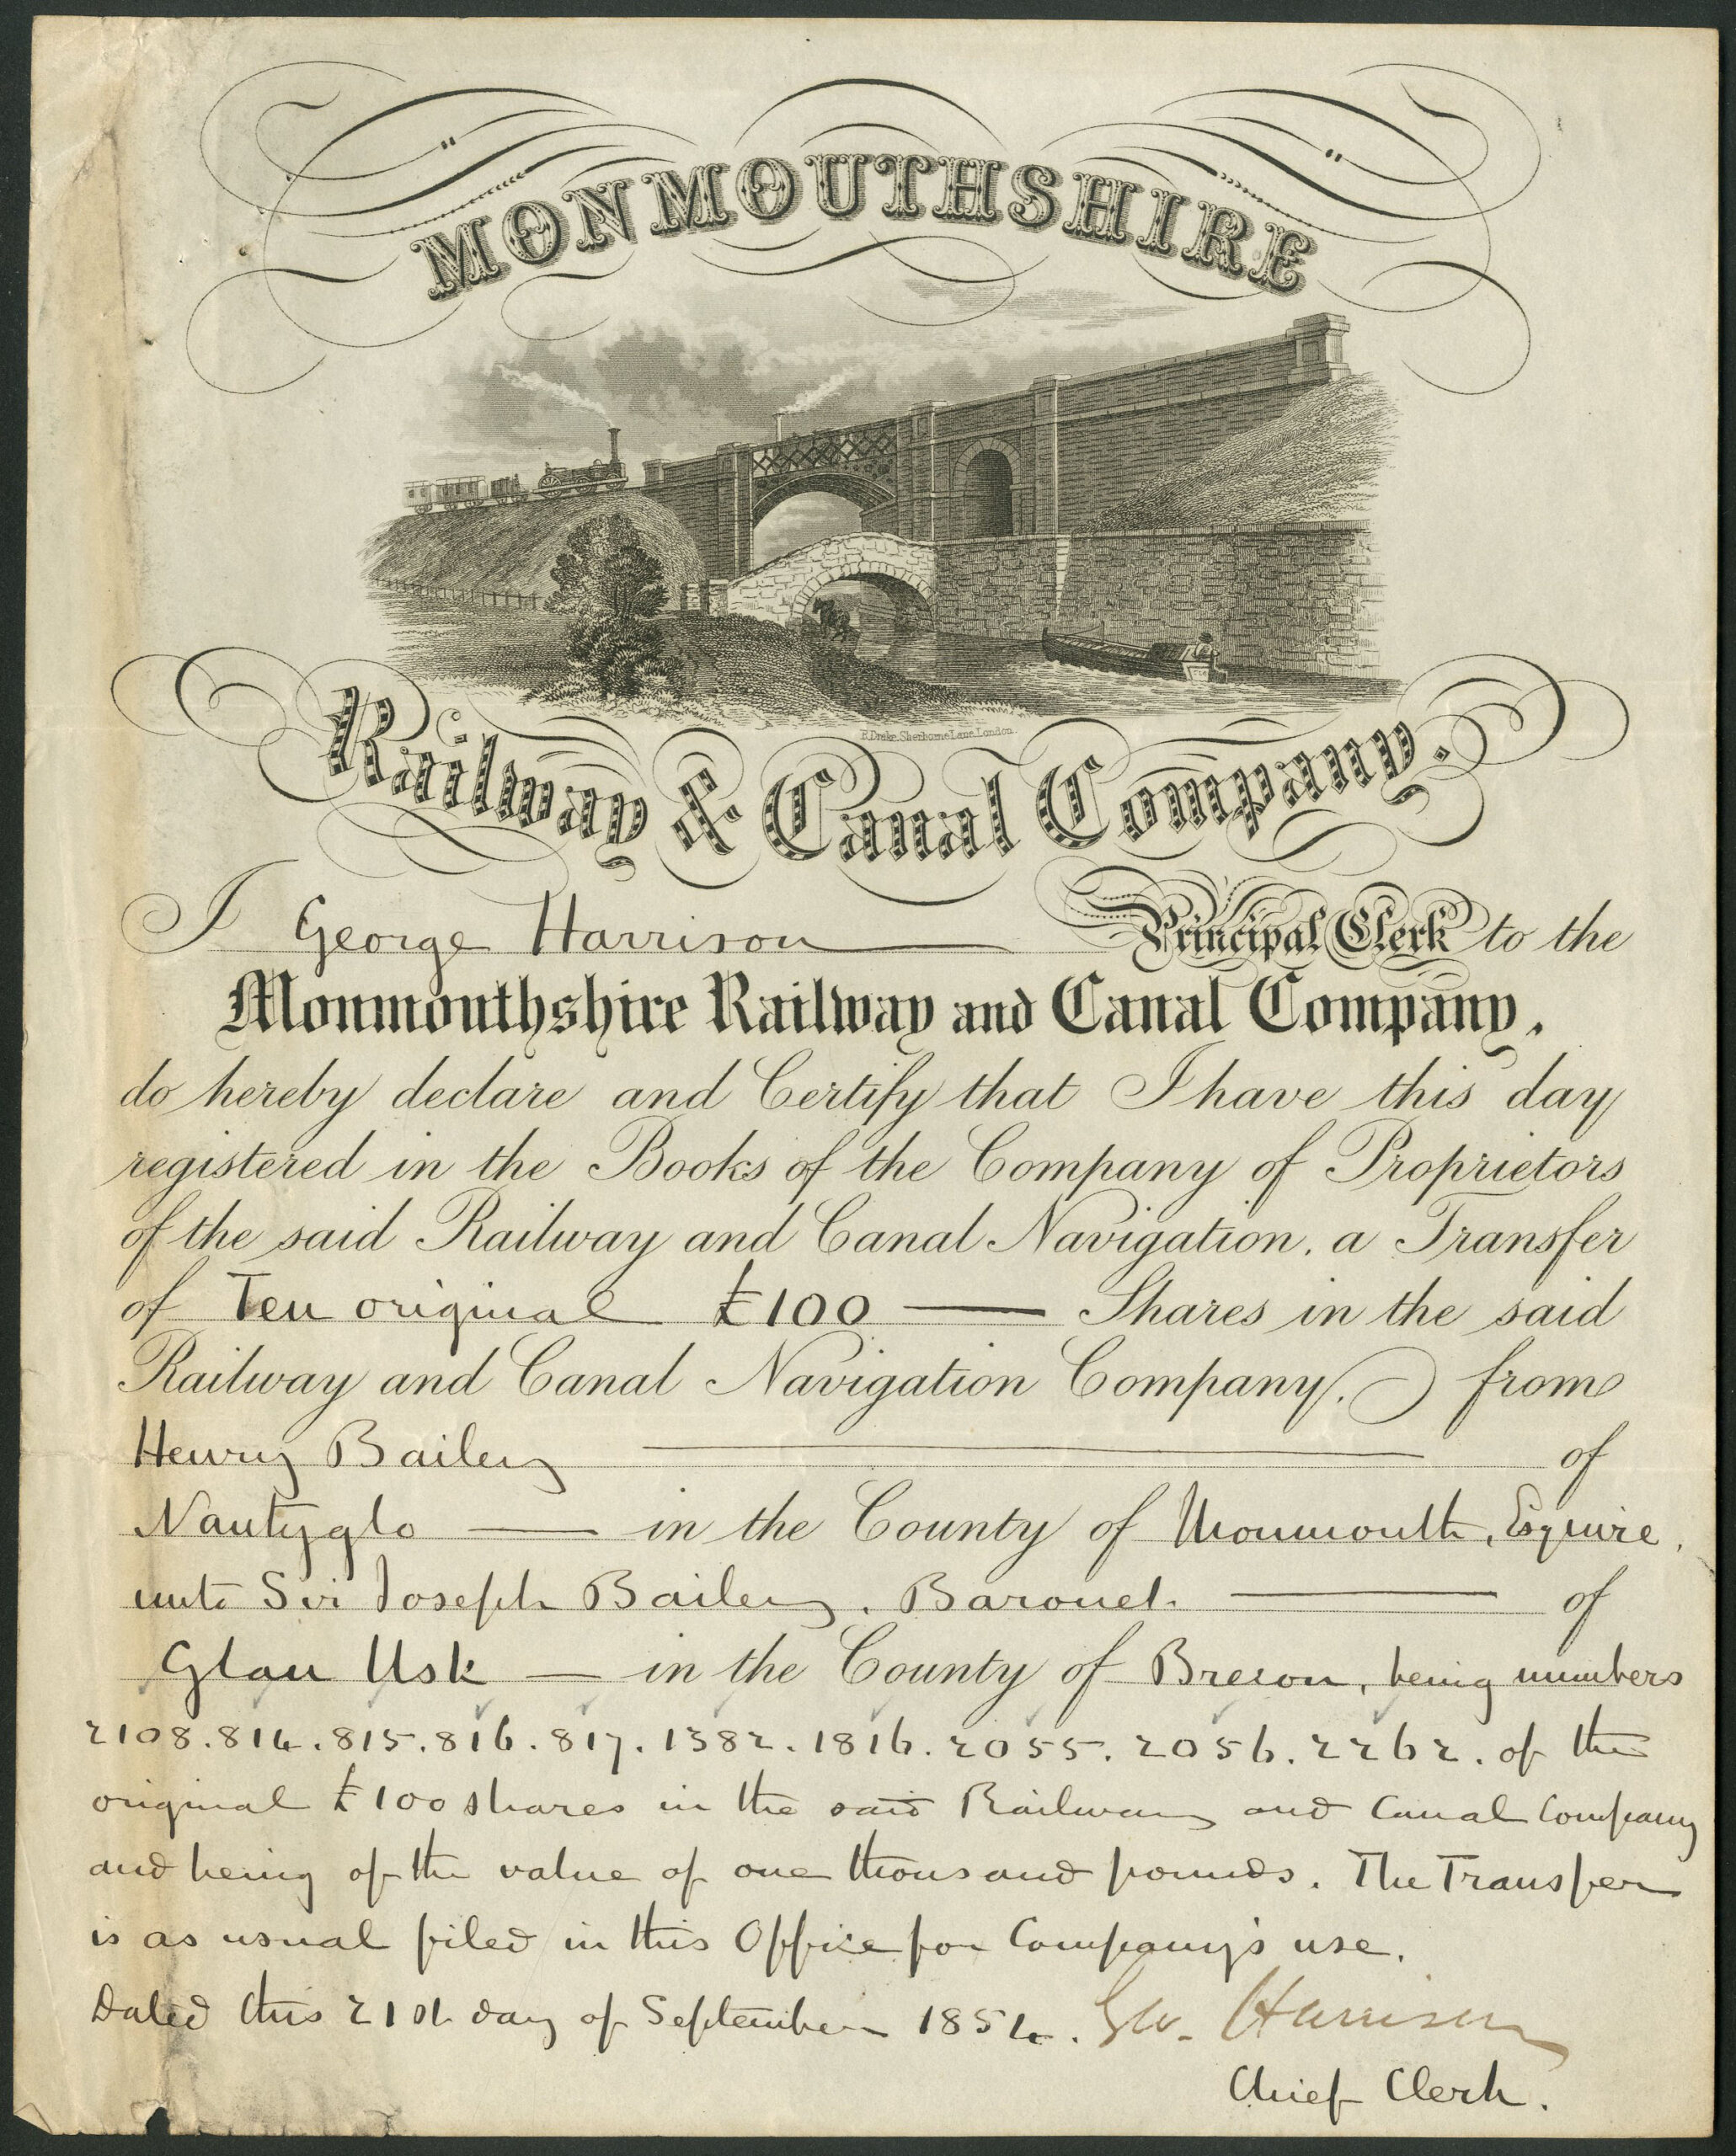 MONMOUTHSHIRE
R. Drake, Sherborne Lane, London.
Railway & Canal Company.
I George Harrison Principal Clerk to the
Monmouthshire Railway and Canal Company,
do hereby declare and Certify that I have this day
registered in the Books of the Company of Proprietors
of the said Railway and Canal Navigation, a Transfer
of Ten original £100 Shares in the said
Railway and Canal Navigation Company, from
Henry Bailey of
Nantyglo in the County of Monmouth, Esquire,
unto Sir Joseph Bailey, Baronet. of
Glan Usk in the County of Brecon, being numbers
2108. 814. 815. 816. 817. 1382. 1816. 2055. 2056. 2262. of the
original £100 shares in the said Railway and Canal Company
and being of the value of one thousand pounds. The Transfer
is as usual filed in this Office for Company's use.
Dated this 21st day of September 1854. Geo. Harrison
Chief Clerk.